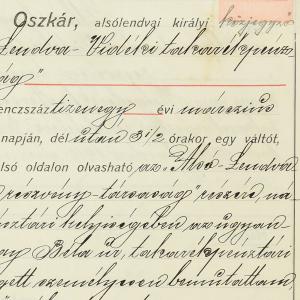 Oszkár, alsólendvai királyi közjegyző
Lendva-Vidéki takarékpénz
ság"
enczszáztizenegy évi márczius
napján, dél után 3 1/2 órakor egy váltót,
lsó oldalon olvasható az "Alsó-Lendva
részvény-társaság" részére, ná
nztári helyiségében az ugyan
ay Béla úr, takarékpénztári
gett személyesen bemutattam